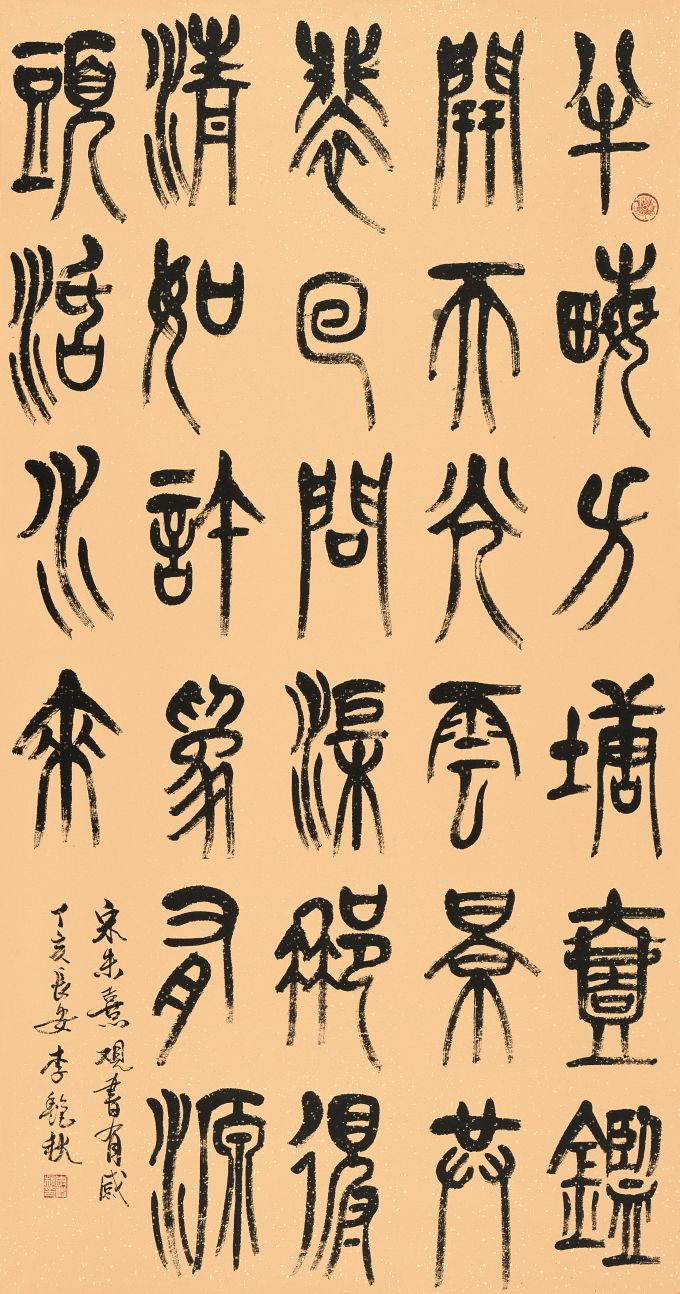 半畮方塘壹鑑
開天光雲景共
裴回問渠那得
清如許爲有源
頭活水來
宋朱熹观書有感
丁亥長安李秋